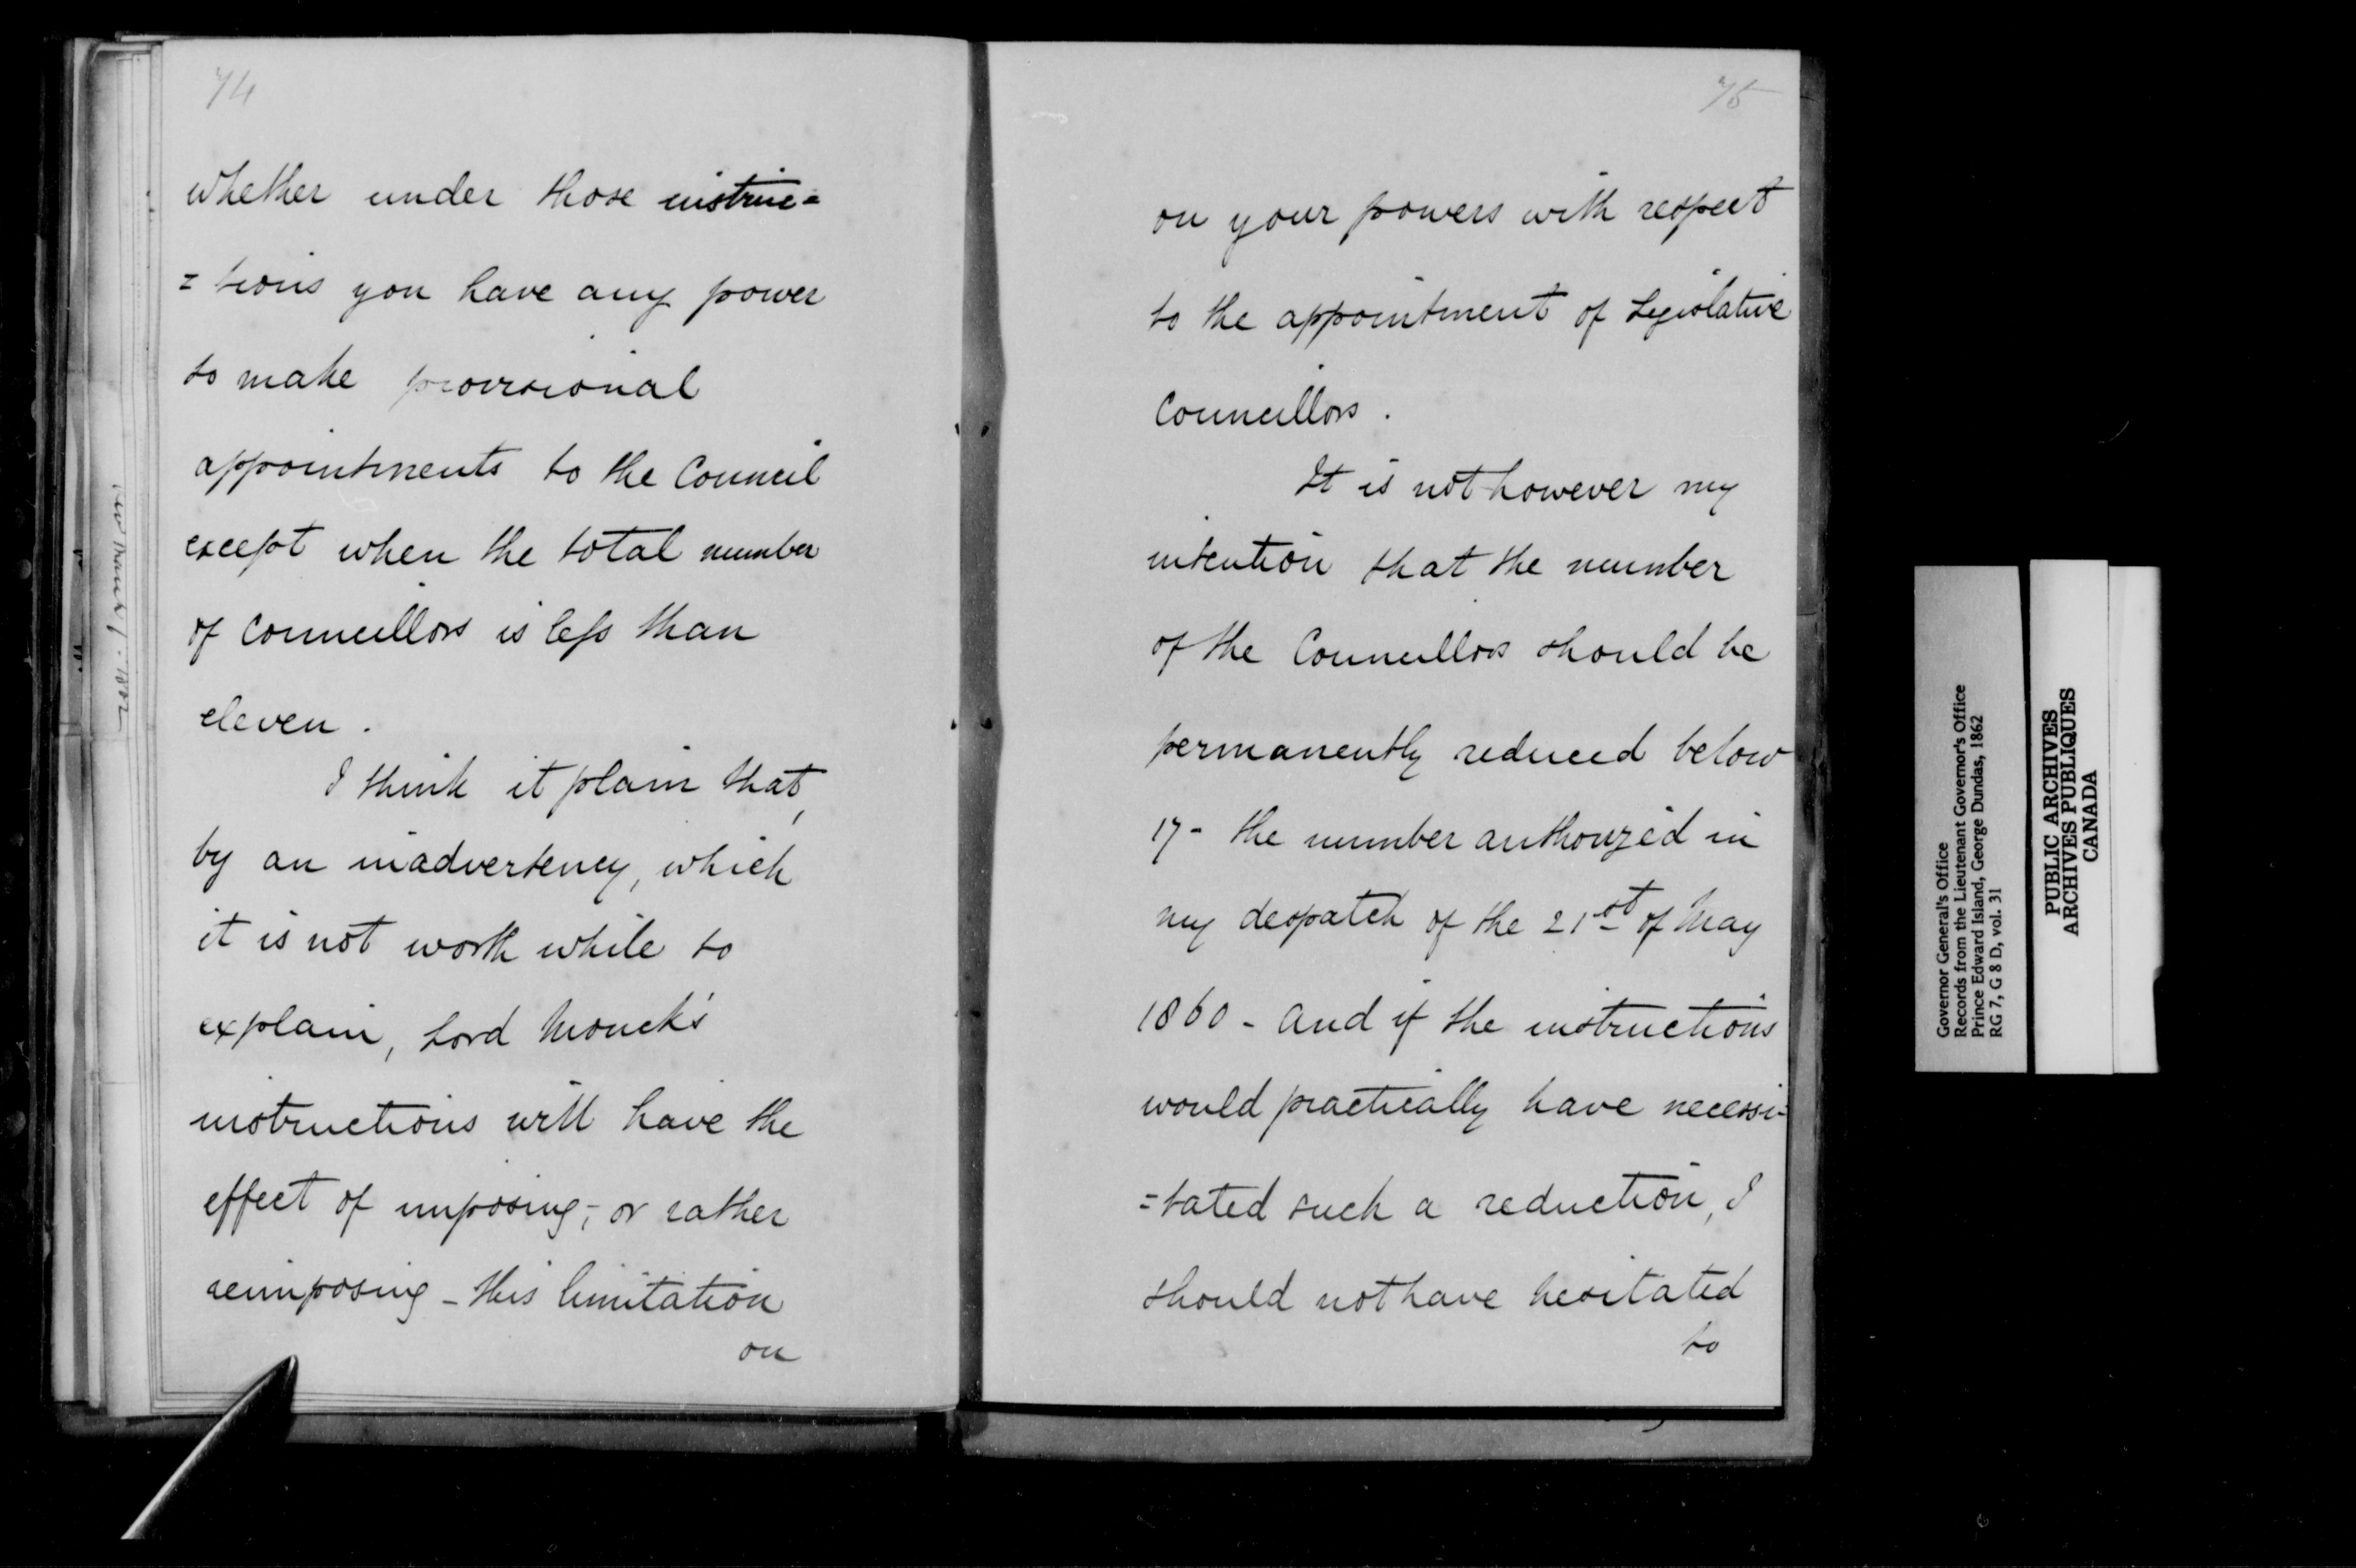 74
whether under those instruc=
=tions you have any power
to make provisional
appointments to the Council
except when the total number
of Councillors is less than
eleven.
I think it plain that,
by an inadvertency, which
it is not worth while to
explain, Lord Monck's
instructions will have the
effect of imposing,- or rather
reimposing - this limitation
on
75
on your powers with respect
to the appointment of Legislative
Councillors.
It is not however my
intention that the number
of the Councillors should be
permanently reduced below
17 - the number authorized in
my despatch of the 21st of May
1860 - and if the instructions
would practically have necessi-
=tated such a reduction, I
should not have hesitated
to
Governor General's Office
Records from the Lieutenant Governor's Office
Prince Edward Island, George Dundas, 1862
RG 7, G 8 D, vol. 31
PUBLIC ARCHIVES
ARCHIVES PUBLIQUES
CANADA